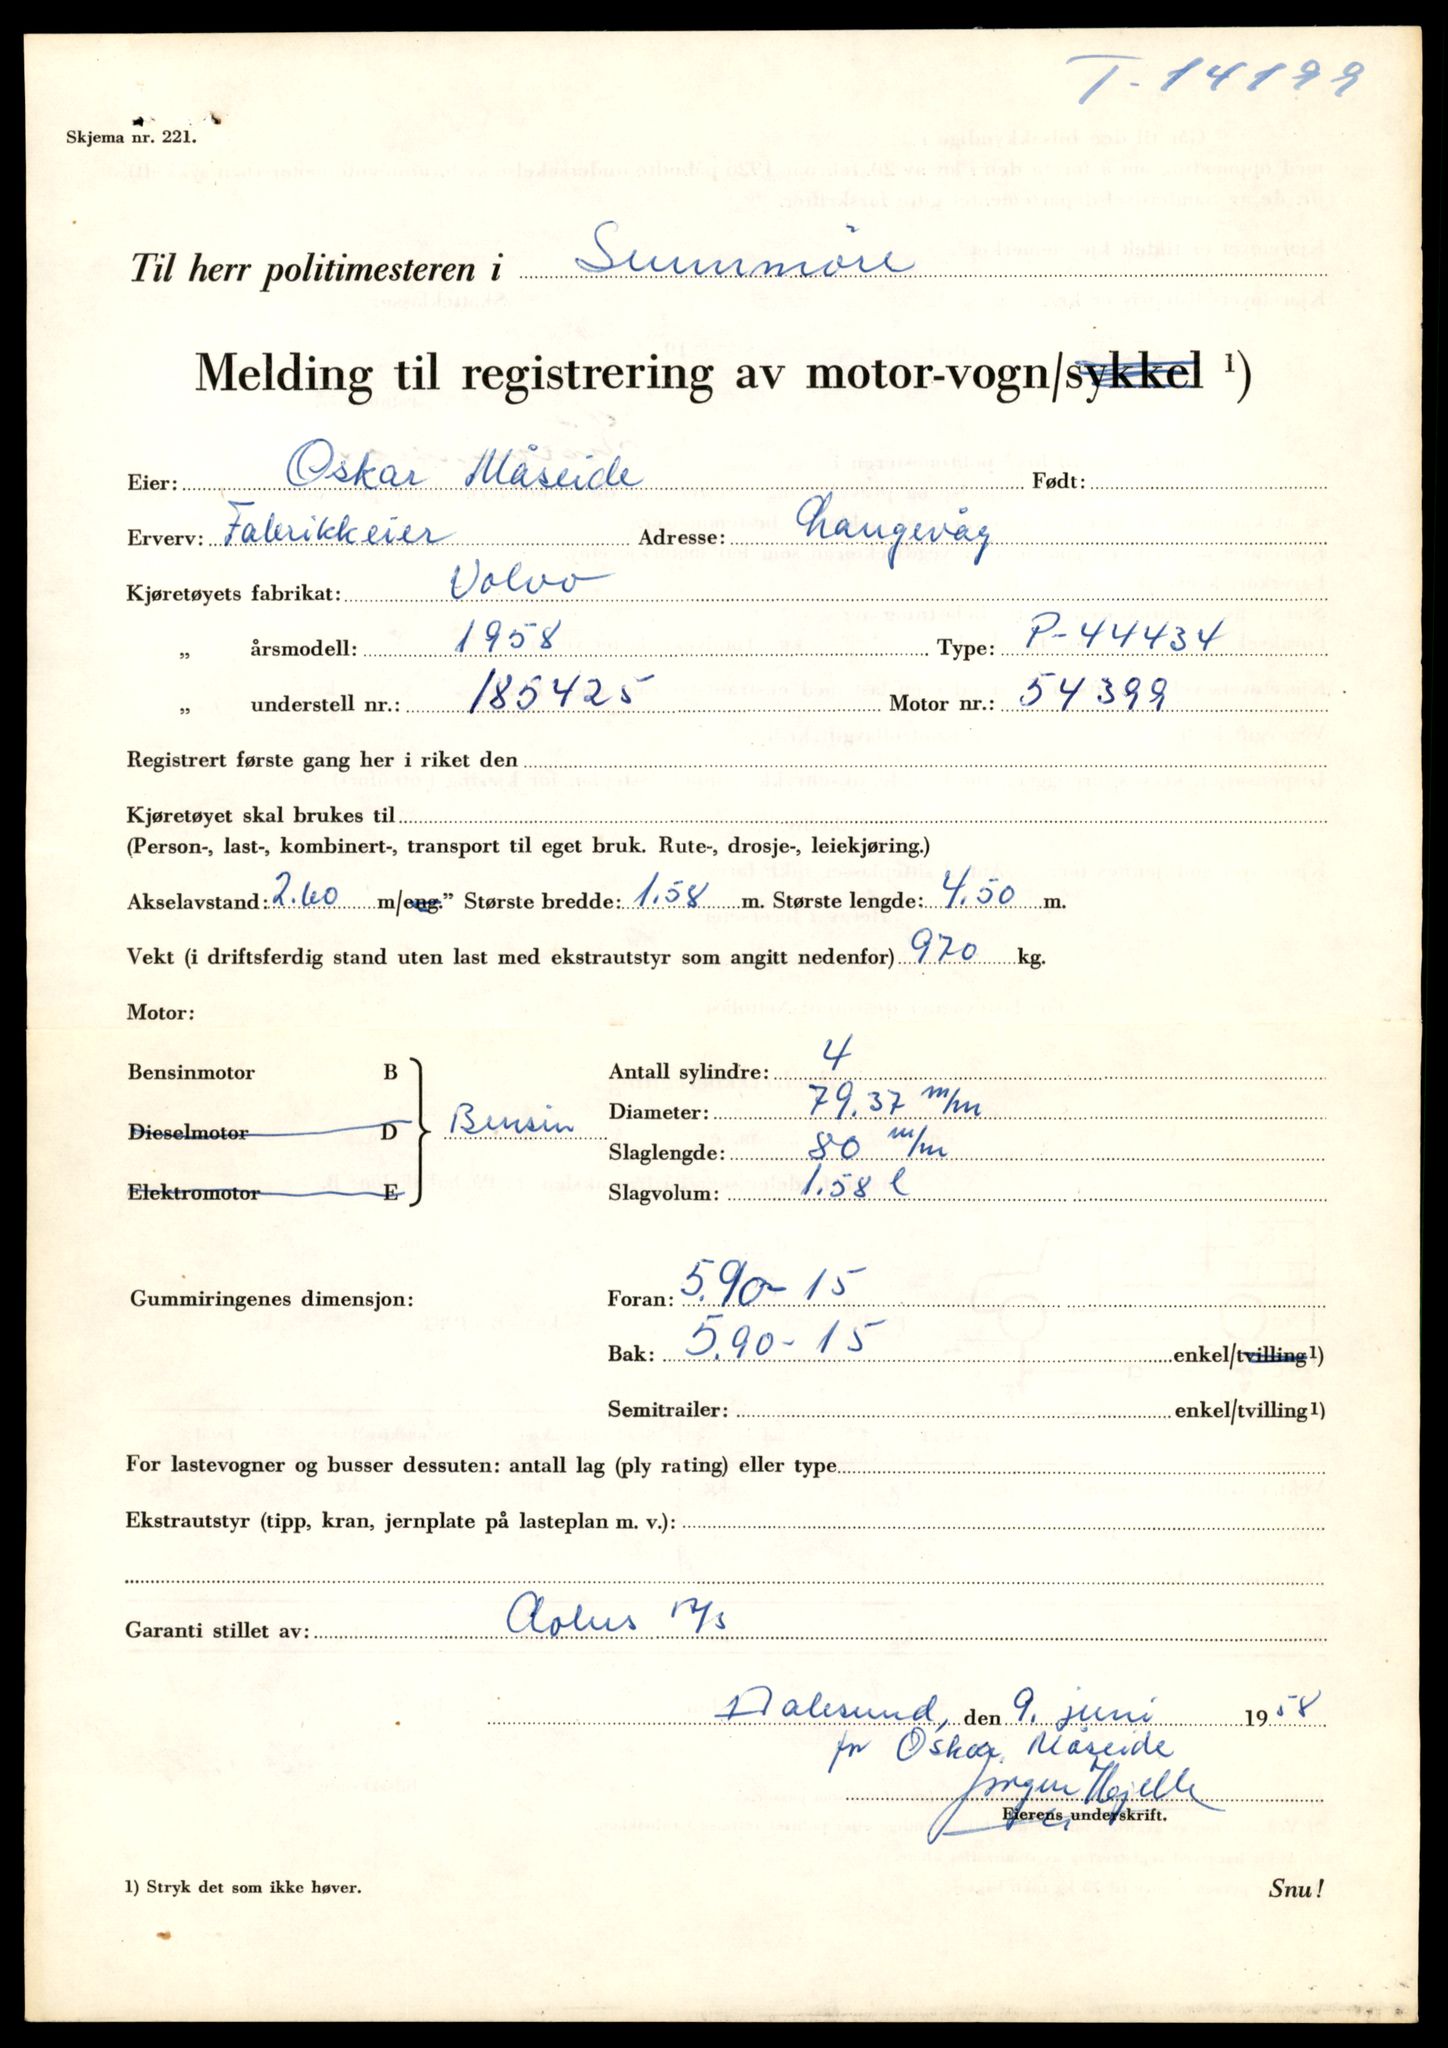 T-14199
Skjema nr. 221.
Til herr politimesteren i Sunnmöre
Melding til registrering av motor-vogn/sykkel 1)
Eier: Oskar Måseide Født:
Erverv: Fabrikkeier Adresse: Langevåg
Kjøretøyets fabrikat: Volvo
„ årsmodell: 1958 Type: P-44434
„ understell nr.: 185425 Motor nr.: 54399
Registrert første gang her i riket den
Kjøretøyet skal brukes til
(Person-, last-, kombinert-, transport til eget bruk. Rute-, drosje-, leiekjøring.)
Akselavstand: 2.60 m/eng.” Største bredde: 1.58 m. Største lengde: 4.50 m.
Vekt (i driftsferdig stand uten last med ekstrautstyr som angitt nedenfor) 970 kg.
Motor:
Bensinmotor B
Dieselmotor D
Elektromotor E
Bensin
Antall sylindre: 4
Diameter: 79.37 m/m
Slaglengde: 80 m/m
Slagvolum: 1.58 l
Gummiringenes dimensjon: Foran: 5.90-15
Bak: 5.90-15 enkel/tvilling1)
Semitrailer: enkel/tvilling1)
For lastevogner og busser dessuten: antall lag (ply rating) eller type
Ekstrautstyr (tipp, kran, jernplate på lasteplan m. v.):
Garanti stillet av: A/s
Aalesund, den 9. juni 1958
for Oskar Måseide
Jørgen
Eierens underskrift.
1) Stryk det som ikke høver.
Snu!